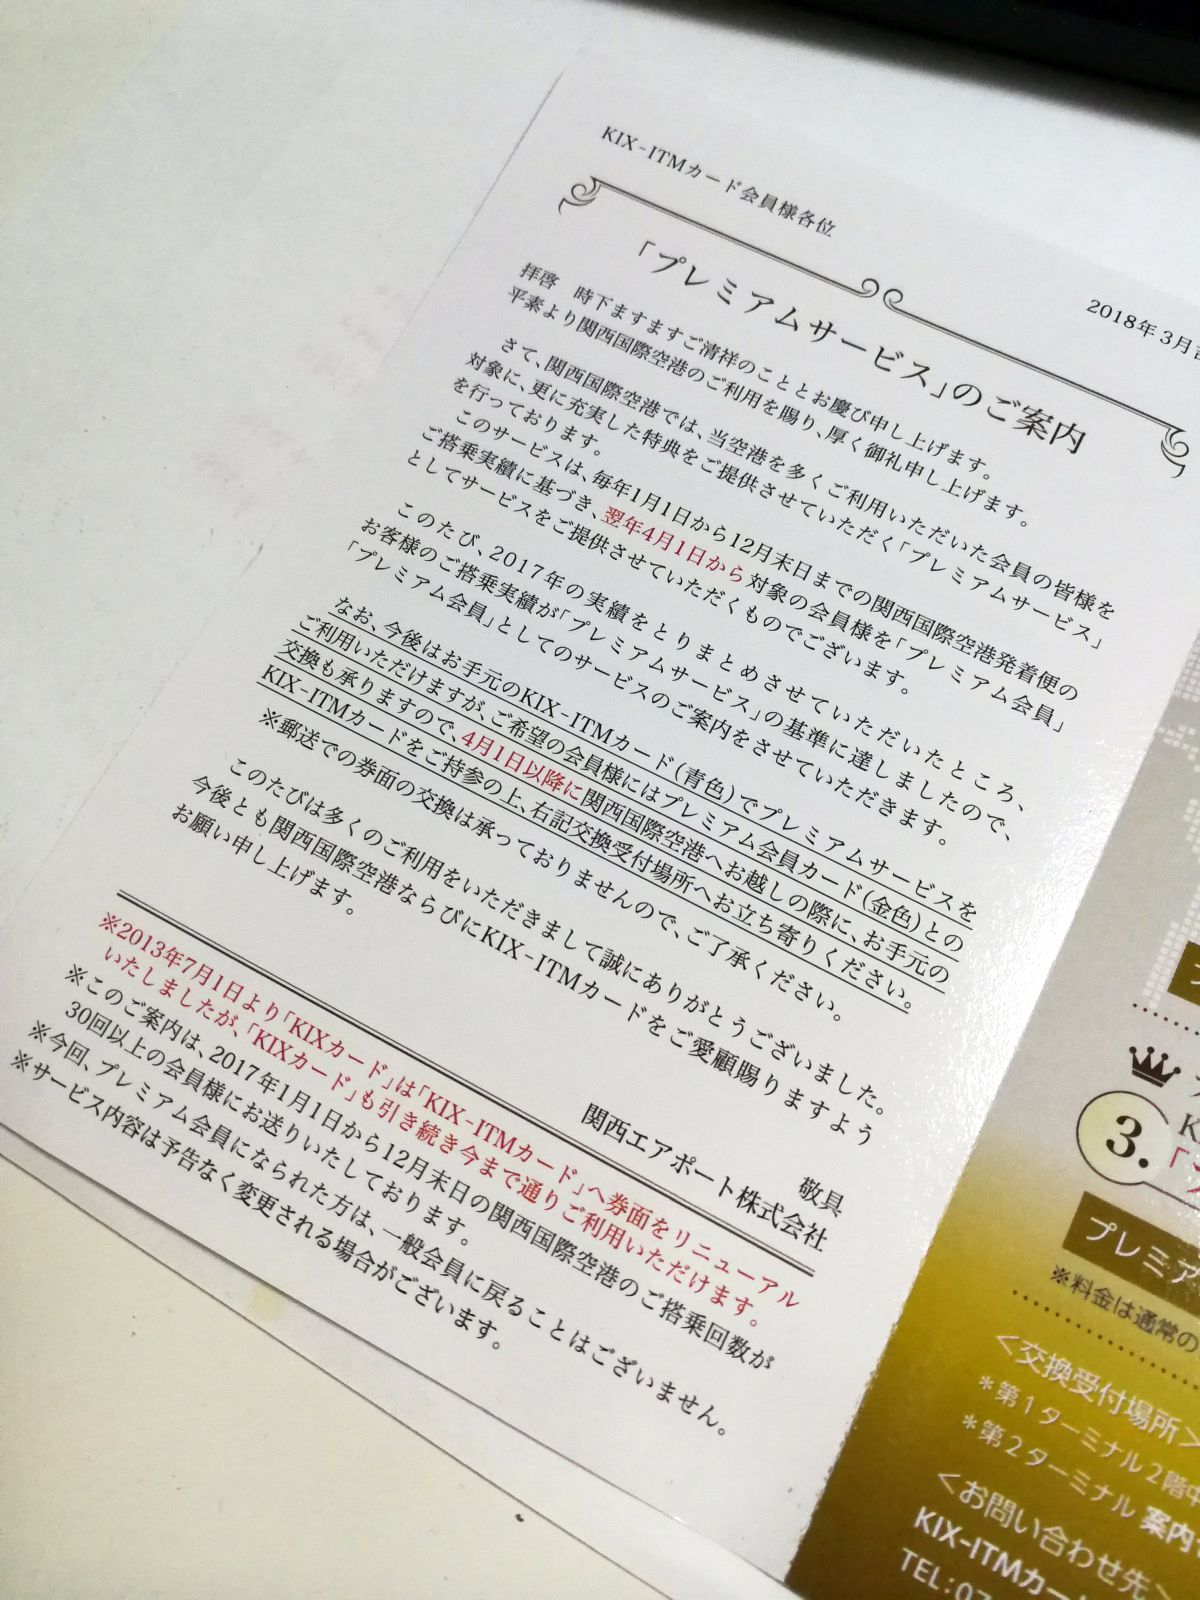 KIX-ITMカード会員様各位
2018年3月吉
「プレミアムサービス」のご案内
拝啓　時下ますますご清祥のこととお慶び申し上げます。
平素より関西国際空港のご利用を賜り、厚く御礼申し上げます。
さて、関西国際空港では、当空港を多くご利用いただいた会員の皆様を
対象に、更に充実した特典をご提供させていただく「プレミアムサービス」
を行っております。
このサービスは、毎年1月1日から12月末日までの関西国際空港発着便の
ご搭乗実績に基づき、翌年4月1日から対象の会員様を「プレミアム会員」
としてサービスをご提供させていただくものでございます。
このたび、2017年の実績をとりまとめさせていただいたところ、
お客様のご搭乗実績が「プレミアムサービス」の基準に達しましたので、
「プレミアム会員」としてのサービスのご案内をさせていただきます。
なお、今後はお手元のKIX-ITMカード(青色)でプレミアムサービスを
ご利用いただけますが、ご希望の会員様にはプレミアム会員カード(金色)との
交換も承りますので、4月1日以降に関西国際空港へお越しの際に、お手元の
KIX-ITMカードをご持参の上、右記交換受付場所へお立ち寄りください。
※郵送での券面の交換は承っておりませんので、ご了承ください。
このたびは多くのご利用をいただきまして誠にありがとうございました。
今後とも関西国際空港ならびにKIX-ITMカードをご愛顧賜りますよう
お願い申し上げます。
敬具
関西エアポート株式会社
※2013年7月1日より「KIXカード」は「KIX-ITMカード」へ券面をリニューアル
いたしましたが、「KIXカード」も引き続き今まで通りご利用いただけます。
※このご案内は、2017年1月1日から12月末日の関西国際空港のご搭乗回数が
30回以上の会員様にお送りいたしております。
※今回、プレミアム会員になられた方は、一般会員に戻ることはございません。
※サービス内容は予告なく変更される場合がございます。
3.
プレミア
※料金は通常の
＜交換受付場所＞
＊第1ターミナル2階中
＊第2ターミナル 案内
＜お問い合わせ先＞
KIX-ITMカー
TEL:07